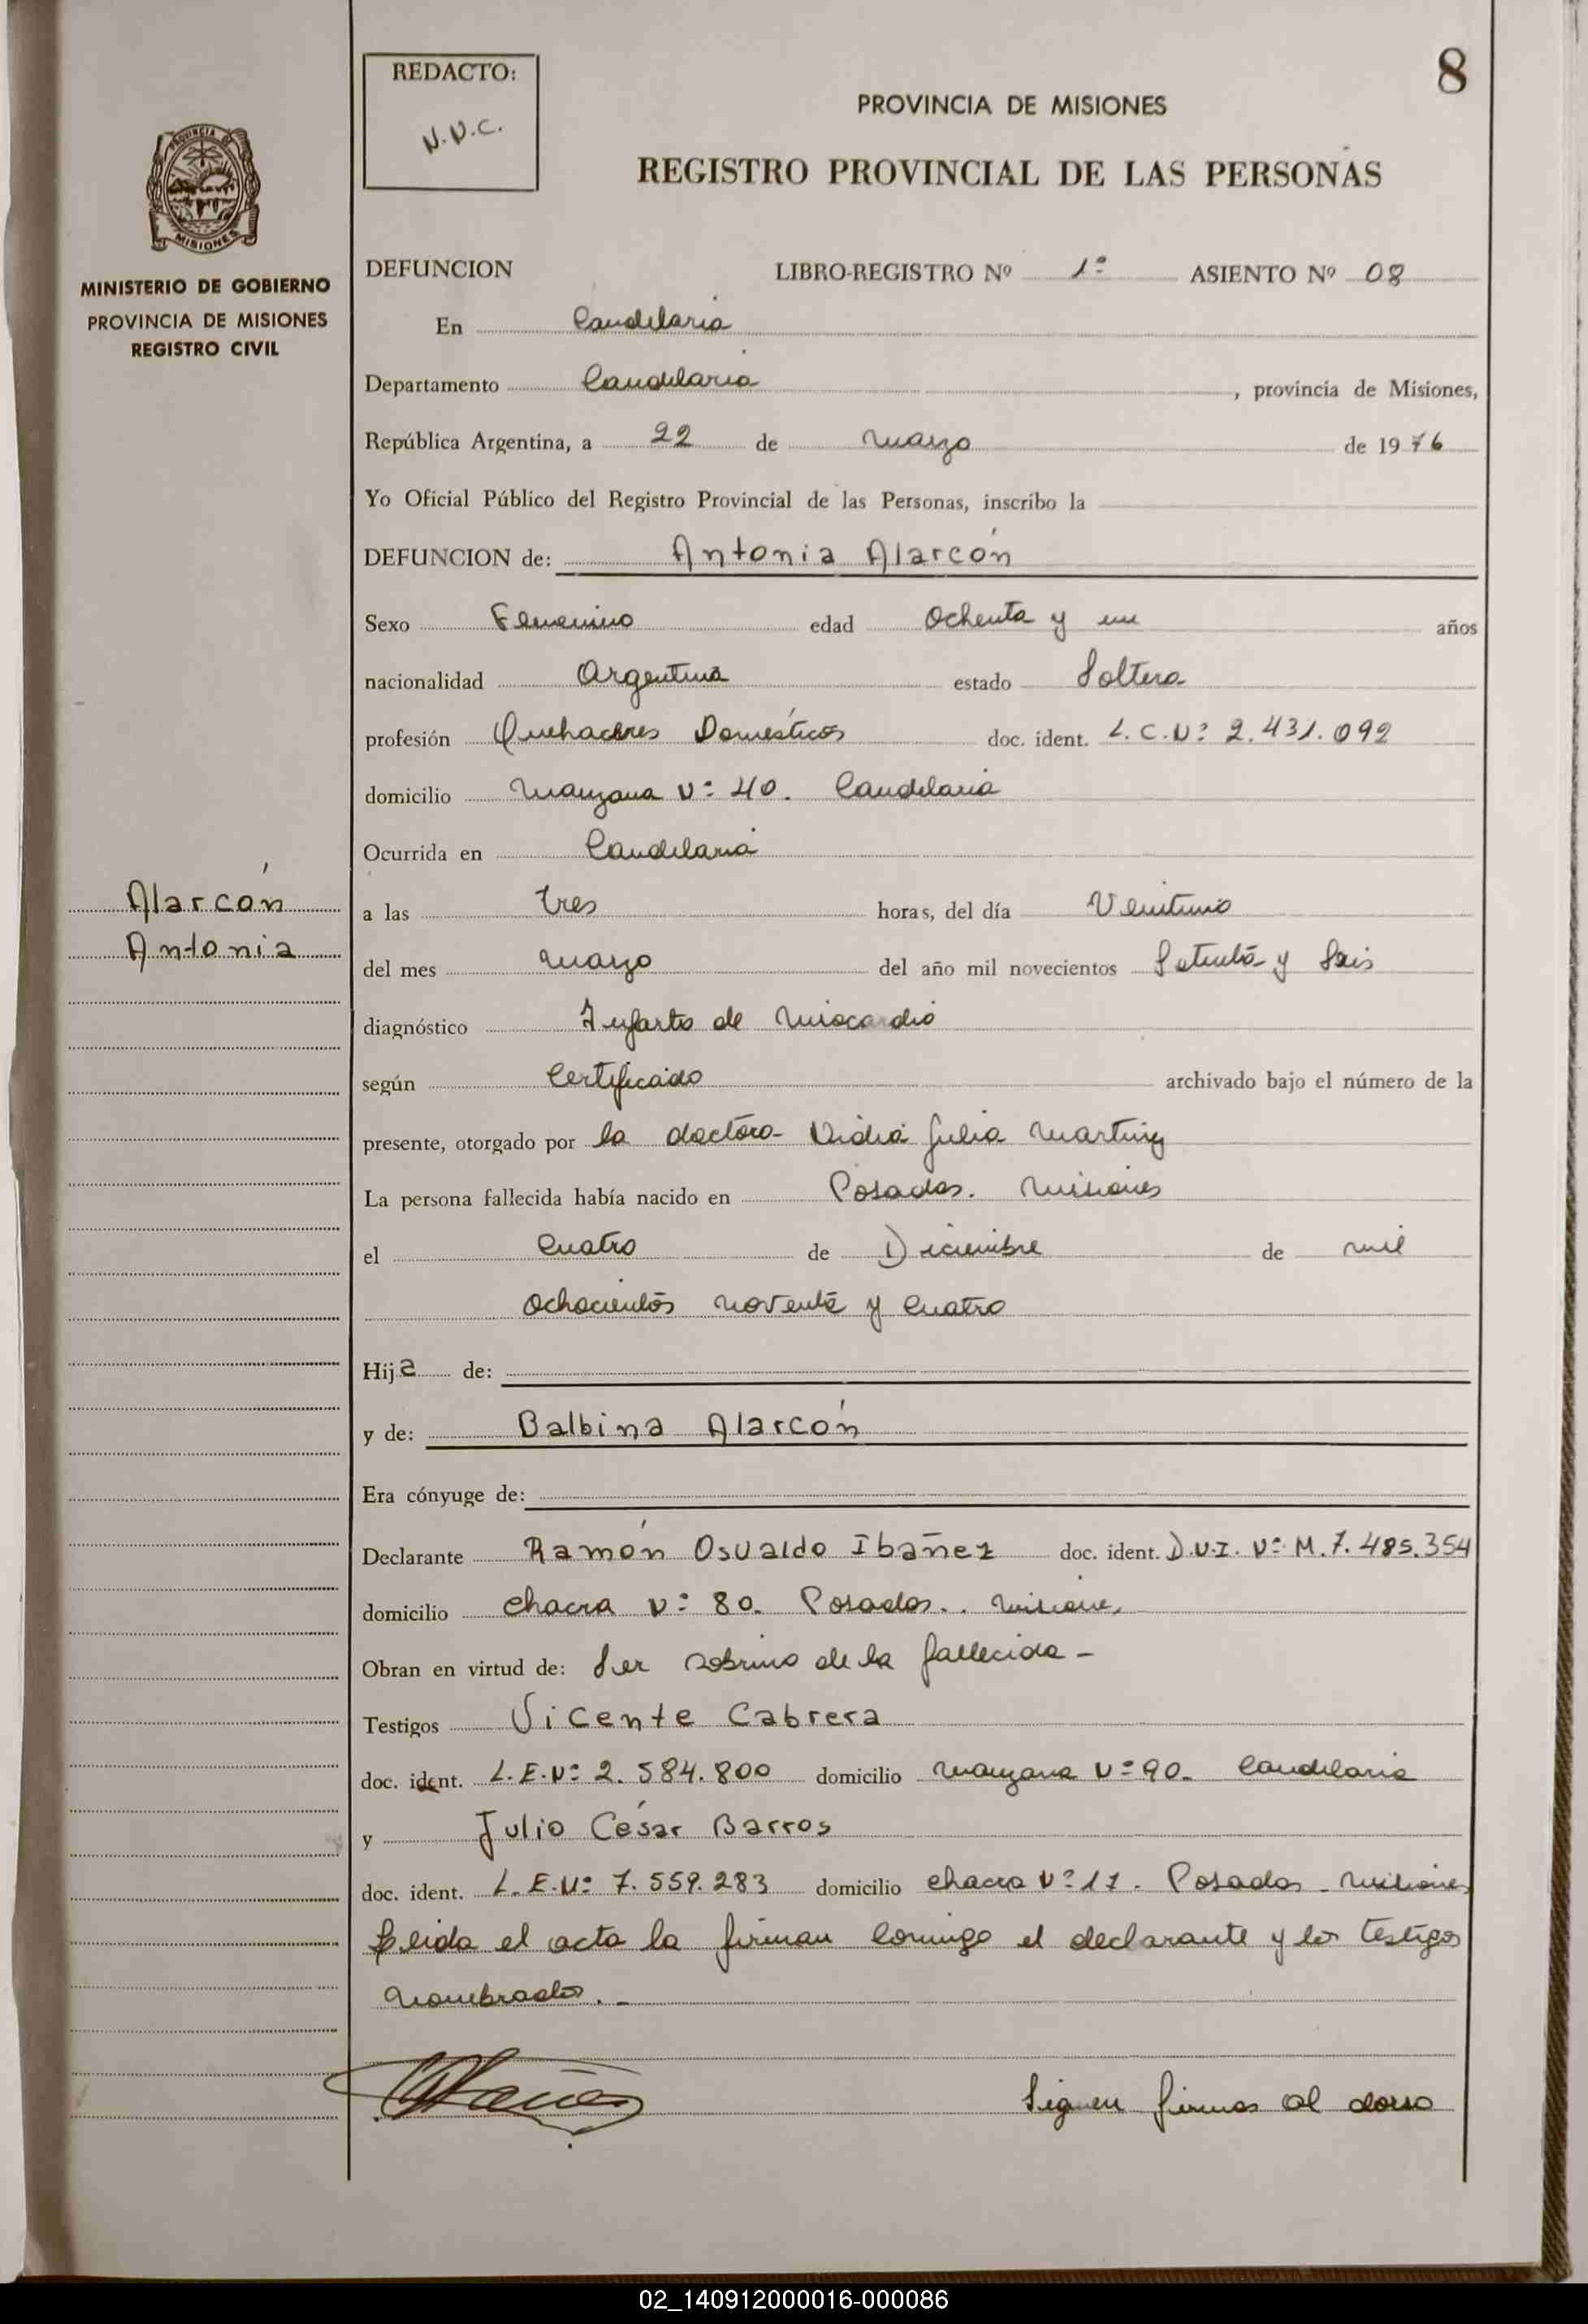 8
REDACTO:
N.N.C.
PROVINCIA DE MISIONES
REGISTRO PROVINCIAL DE LAS PERSONAS
PROVINCIA DE
MISIONES
MINISTERIO DE GOBIERNO
PROVINCIA DE MISIONES
REGISTRO CIVIL
DEFUNCION LIBRO-REGISTRO Nº 1º ASIENTO Nº 08
En Candelaria
Departamento Candelaria, provincia de Misiones,
República Argentina, a 22 de marzo de 1976
Yo Oficial Público del Registro Provincial de las Personas, inscribo la
DEFUNCION de: Antonia Alarcón
Sexo Femenino edad Ochenta y un años
nacionalidad Argentina estado Soltera
profesión Quehaceres Domésticos doc. ident. L.C.Nº 2.431.092
domicilio manzana Nº 40. Candelaria
Ocurrida en Candelaria
Alarcón
Antonia
a las tres horas, del día Veintiuno
del mes marzo del año mil novecientos Setenta y Seis
diagnóstico Infarto de miocardio
según Certificado archivado bajo el número de la
presente, otorgado por la doctora Julia Martínez
La persona fallecida había nacido en Posadas. Misiones
el Cuatro de Diciembre de mil
ochocientos noventa y cuatro
Hija de:
y de: Balbina Alarcón
Era cónyuge de:
Declarante Ramón Osvaldo Ibañez doc. ident. D.N.I. Nº M.7.485.354
domicilio chacra Nº 80. Posadas.. Misiones
Obran en virtud de: Ser sobrino de la fallecida -
Testigos Vicente Cabrera
doc. ident. L.E.Nº 2.584.800 domicilio manzana Nº 90. Candelaria
y Julio César Barros
doc. ident. L.E.Nº 7.559.283 domicilio chacra Nº 17. Posadas - Misiones
Leida el acta la firman conmigo el declarante y los testigos
nombrados. -
Siguen firmas al dorso
02_140912000016-000086